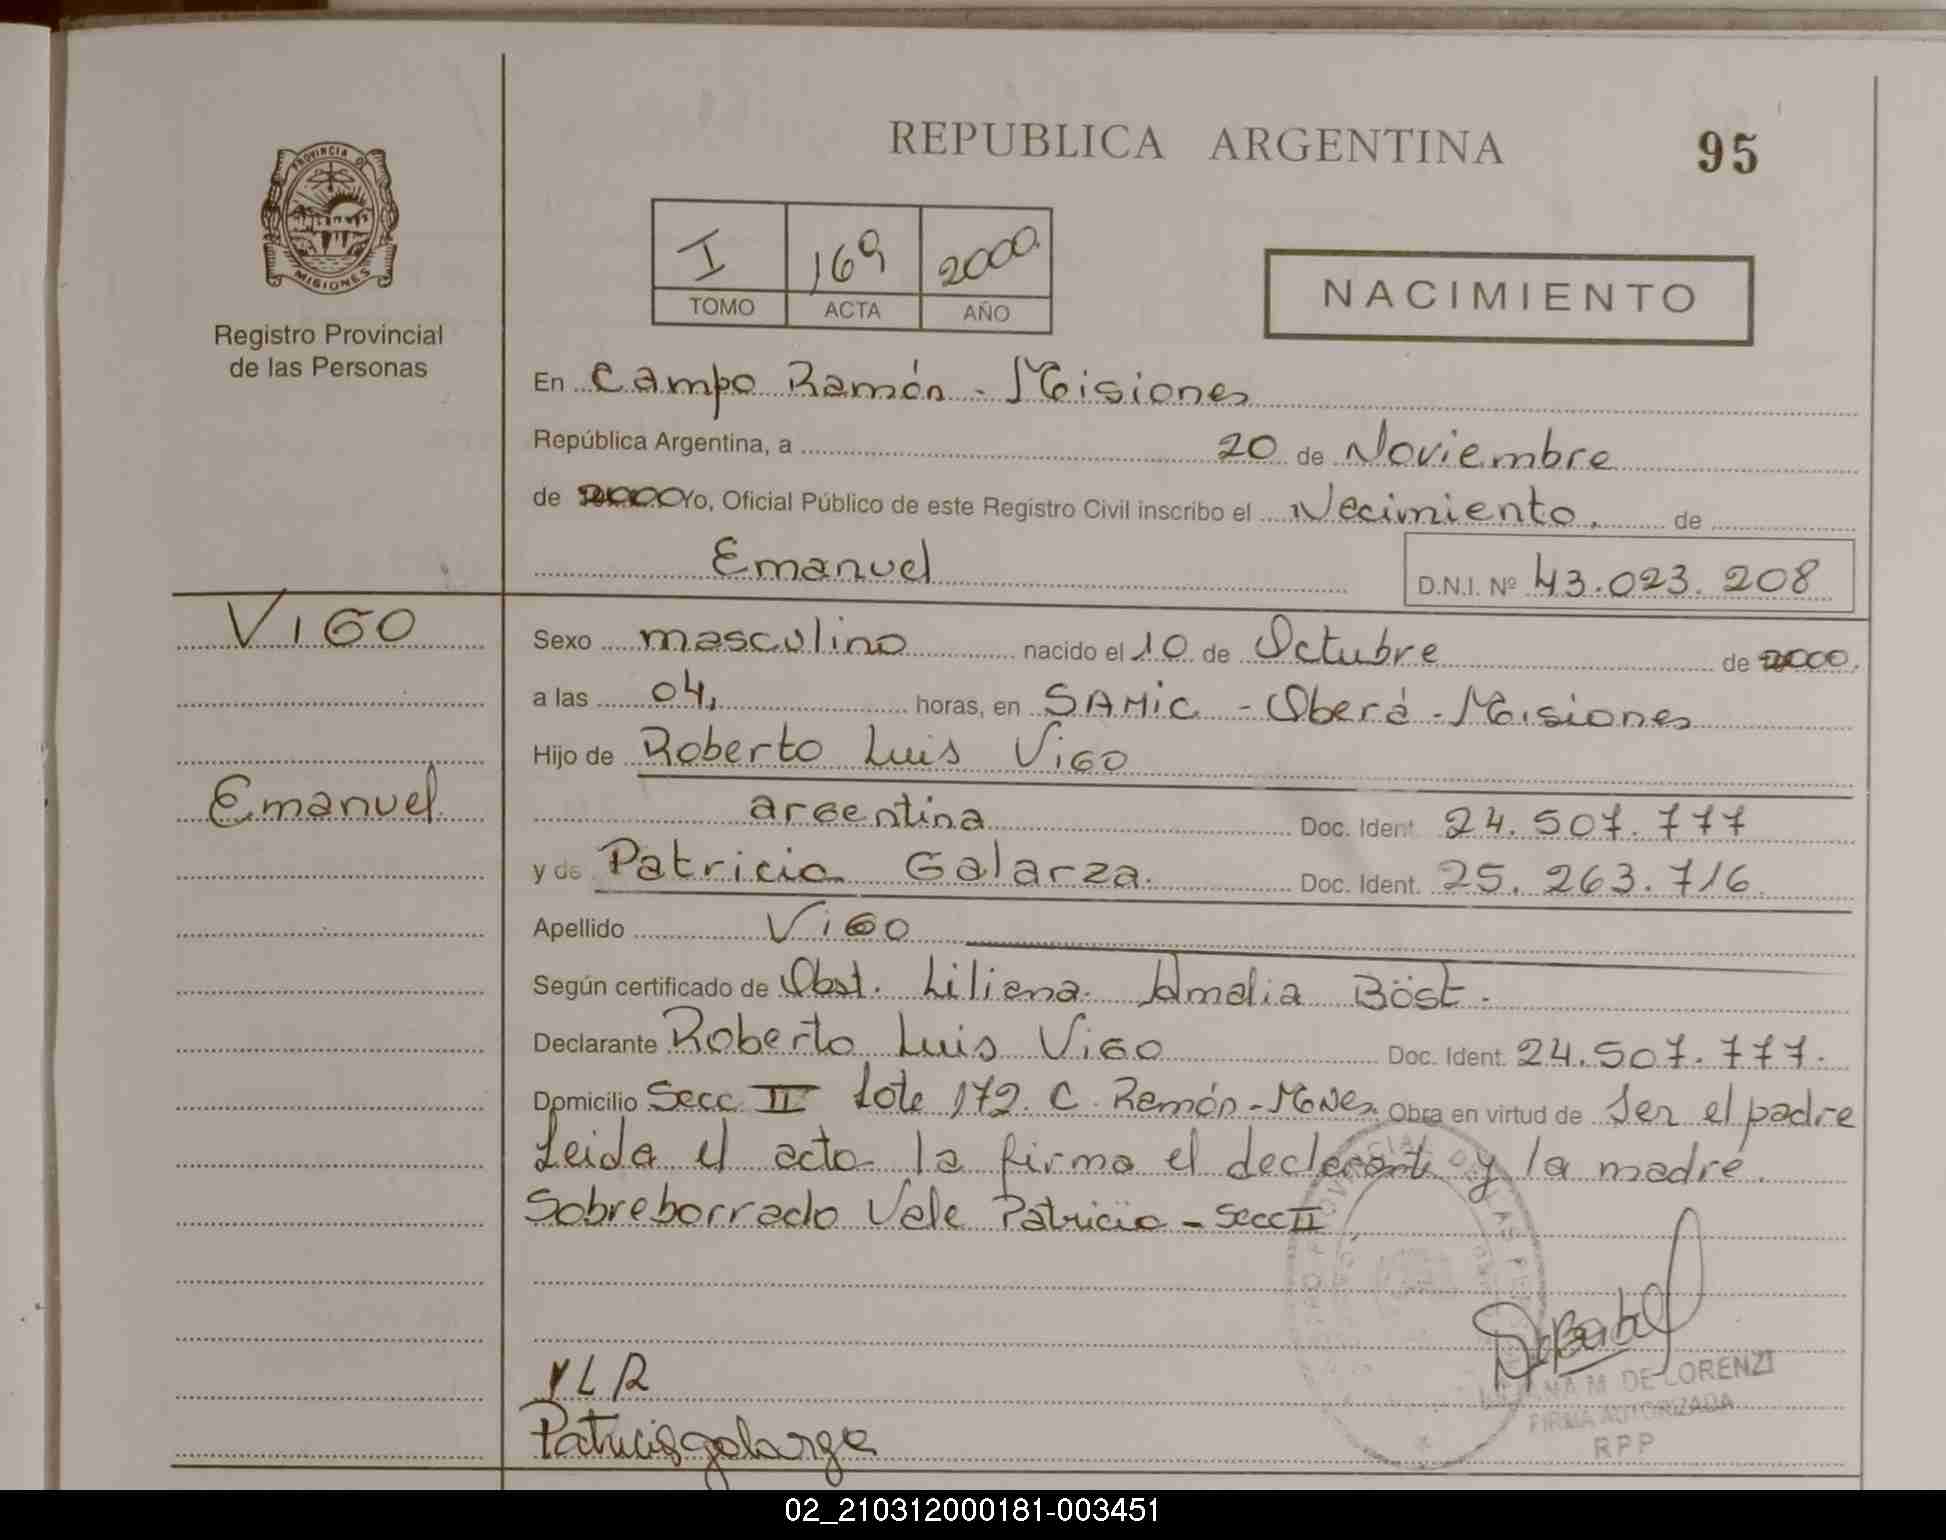 REPUBLICA ARGENTINA
95
PROVINCIA DE
MISIONES
Registro Provincial
de las Personas
I 169 2000
TOMO ACTA AÑO
NACIMIENTO
En Campo Ramón - Misiones
República Argentina, a 20 de Noviembre
de 2000 Yo, Oficial Público de este Registro Civil inscribo el Necimiento. de
Emanuel D.N.I. Nº 43.023.208
VIGO
Emanuel
Sexo masculino nacido el 10 de Octubre de 2000.
a las 04, horas, en SAMIC - Oberá - Misiones
Hijo de Roberto Luis Vigo
argentina Doc. Ident. 24.507.777
y de Patricia Galarza. Doc. Ident. 25.263.716
Apellido Vigo
Según certificado de Obst. Liliana Amalia Böst.
Declarante Roberto Luis Vigo Doc. Ident. 24.507.777.
Domicilio Secc II Lote 172. C. Ramón - Mnes. Obra en virtud de Ser el padre
Leida el acta la firma el declarante y la madre.
Sobreborrado Vale Patricia - Secc II
VLR
Patricia galarza
M. DE LORENZI
FIRMA AUTORIZADA
RPP
02_210312000181-003451